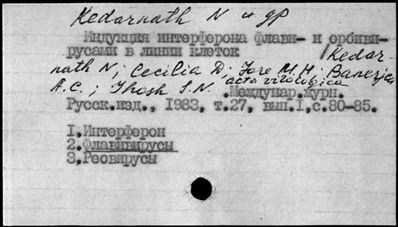 Kedarnath N и др
Индукция интерферона флави- и орбиви-
русами в линии клеток / Kedar-
nath N; Cecilia D; Gore M.M; Banerjee
A.C.; Ghosh S.N acta virologica
.Междунар.журн.
Русск.изд., 1983, т.27, вып.1,с.80-85.
1.Интерферон
2.Флавивирусы
3.Реовирусы